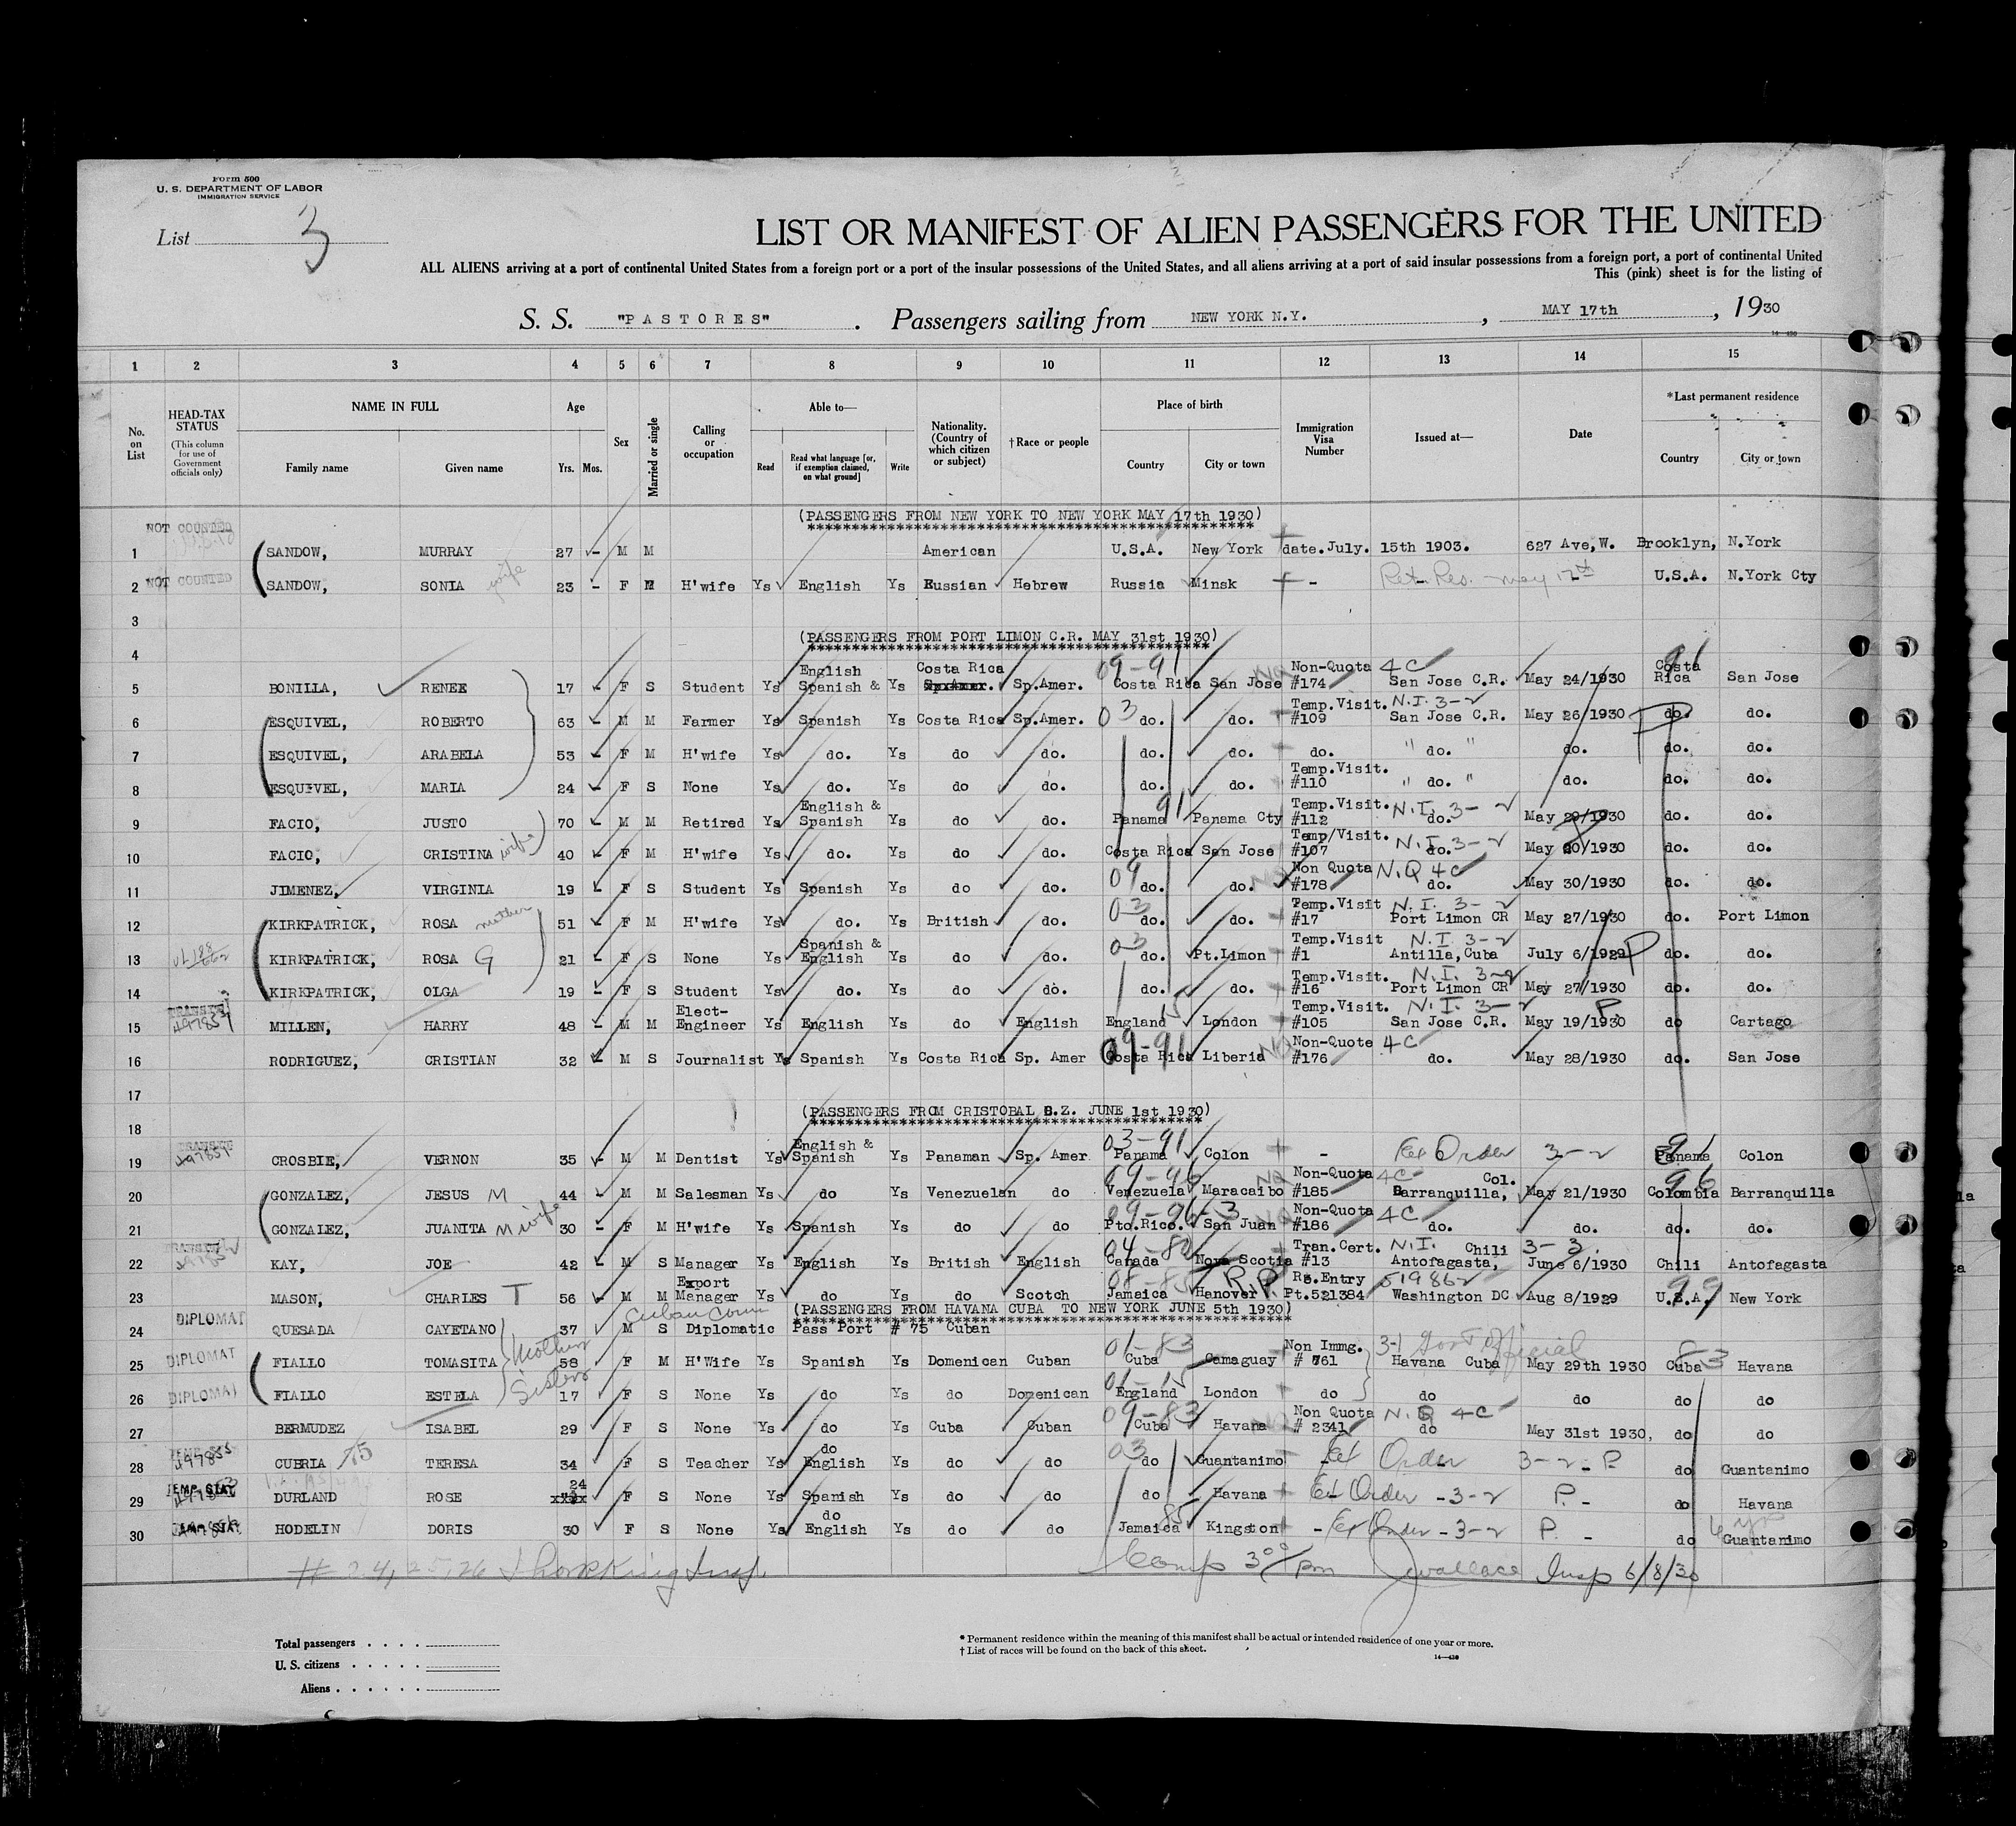 Form 500
U. S. DEPARTMENT OF LABOR
IMMIGRATION SERVICE
List 3
LIST OR MANIFEST OF ALIEN PASSENGERS FOR THE UNITED
ALL ALIENS arriving at a port of continental United States from a foreign port or a port of the insular possessions of the United States, and all aliens arriving at a port of said insular possessions from a foreign port, a port of continental United
This (pink) sheet is for the listing of
S. S. "PASTORES" . Passengers sailing from NEW YORK N.Y. , MAY 17th , 1930
1 2 3 4 5 6 7 8 9 10 11 12 13 14 15
No. on List
HEAD-TAX STATUS (This column for use of Government officials only)
NAME IN FULL Family name Given name
Age Yrs. Mos.
Sex
Married or single
Calling or occupation
Able to— Read Read what language [or, if exemption claimed, on what ground] Write
Nationality. (Country of which citizen or subject)
†Race or people
Place of birth Country City or town
Immigration Visa Number
Issued at—
Date
*Last permanent residence Country City or town
(PASSENGERS FROM NEW YORK TO NEW YORK MAY 17th 1930)
NOT COUNTED
1 SANDOW, MURRAY 27 - M M American U.S.A. New York date.July. 15th 1903. 627 Ave,W. Brooklyn, N.York
2 NOT COUNTED SANDOW, SONIA wife 23 - F M H'wife Ys English Ys Russian Hebrew Russia Minsk - Ret. Res. may 12th U.S.A. N.York Cty
3
(PASSENGERS FROM PORT LIMON C.R. MAY 31st 1930)
4
English Costa Rica 09-91 Non-Quota 4C Costa 91
5 BONILLA, RENEE 17 - F S Student Ys Spanish & Ys Sp.Amer. Sp.Amer. Costa Rica San Jose #174 San Jose C.R. May 24/1930 Rica San Jose
Temp.Visit. N.I. 3-2
6 ESQUIVEL, ROBERTO 63 - M M Farmer Ys Spanish Ys Costa Rica Sp.Amer. 03 do. do. #109 San Jose C.R. May 26/1930 do. do.
7 ESQUIVEL, ARABELA 53 - F M H'wife Ys do. Ys do do. do. do. do. " do. " do. do. do.
Temp.Visit.
8 ESQUIVEL, MARIA 24 - F S None Ys do. Ys do do. do. do. #110 " do. " do. do. do.
English & 91 Temp.Visit. N.I. 3-2
9 FACIO, JUSTO 70 - M M Retired Ys Spanish Ys do do. Panama Panama Cty #112 do. May 29/1930 do. do.
Temp/Visit. N.I. 3-2
10 FACIO, CRISTINA wife 40 - F M H'wife Ys do. Ys do do. Costa Rica San Jose #107 do. May 20/1930 do. do.
09 Non Quota N.Q 4C
11 JIMENEZ, VIRGINIA 19 - F S Student Ys Spanish Ys do do. do. do. #178 do. May 30/1930 do. do.
03 Temp.Visit N.I. 3-2
12 KIRKPATRICK, ROSA mother 51 F M H'wife Ys do. Ys British do. do. do. #17 Port Limon CR May 27/1930 do. Port Limon
Spanish & 03 Temp.Visit N.I 3-2
13 KIRKPATRICK, ROSA G 21 - F S None Ys English Ys do do. do. Pt.Limon #1 Antilla,Cuba July 6/1929 P do. do.
Temp.Visit. N.I. 3-2
14 KIRKPATRICK, OLGA 19 - F S Student Ys do. Ys do do. do. do. #16 Port Limon CR May 27/1930 do. do.
TRANSIT Elect- 15 Temp.Visit. N.I. 3-2 P.
15 MILLEN, HARRY 48 - M M Engineer Ys English Ys do English England London #105 San Jose C.R. May 19/1930 do Cartago
09-91 Non-Quote 4C
16 RODRIGUEZ, CRISTIAN 32 - M S Journalist Ys Spanish Ys Costa Rica Sp. Amer Costa Rica Liberia #176 do. May 28/1930 do. San Jose
17
(PASSENGERS FROM CRISTOBAL C.Z. JUNE 1st 1930)
18
TRANSIT 497851 English & 03-91
19 CROSBIE, VERNON 35 - M M Dentist Ys Spanish Ys Panaman Sp. Amer Panama Colon - Ex Order 3-2 Panama Colon
09-96 Non-Quota 4C Col. 96
20 GONZALEZ, JESUS M 44 - M M Salesman Ys do Ys Venezuelan do Venezuela Maracaibo #185 Barranquilla, May 21/1930 Colombia Barranquilla
09-96-3 Non-Quota 4C
21 GONZALEZ, JUANITA M wife 30 - F M H'wife Ys Spanish Ys do do Pto.Rico. San Juan #186 do. do. do. do.
TRANSIT 04-82 Tran.Cert. N.I. Chili 3-3.
22 KAY, JOE 42 - M S Manager Ys English Ys British English Canada Nova Scotia #13 Antofagasta, June 6/1930 Chili Antofagasta
Export 08-85 R.P. Re.Entry 519862 99
23 MASON, CHARLES T 56 - M M Manager Ys do Ys do Scotch Jamaica Hanover Pt.521384 Washington DC Aug 8/1929 U.S.A. New York
Cuban Coun (PASSENGERS FROM HAVANA CUBA TO NEW YORK JUNE 5th 1930)
24 DIPLOMAT QUESADA CAYETANO 37 M S Diplomatic Pass Port # 75 Cuban
01-83 Non Immg. 3-1 Gov't Official 83
25 DIPLOMAT FIALLO TOMASITA Mother 58 F M H'Wife Ys Spanish Ys Domenican Cuban Cuba Camaguay # 761 Havana Cuba May 29th 1930 Cuba Havana
01-15
26 DIPLOMAT FIALLO ESTELA Sister 17 F S None Ys do Ys do Domenican England London do do do do do
09-83 Non Quota N.Q 4C
27 BERMUDEZ ISABEL 29 F S None Ys do Ys Cuba Cuban Cuba Havana # 2341 do May 31st 1930, do do
497855 do 03
28 CUBRIA TERESA 34 F S Teacher Ys English Ys do do do Guantanimo - Ex Order 3-2 - P. do Guantanimo
TEMP. STAY 24
29 DURLAND ROSE F S None Ys Spanish Ys do do do Havana Ex Order -3-2 P. - do Havana
TEMP. STAY do 85
30 HODELIN DORIS 30 F S None Ys English Ys do do Jamaica Kingston - Ex Order -3-2 P. - do Guantanimo
# 24, 25, 26 Insp. Comp 3 00/pm J Wallace Insp 6/8/30
Total passengers . . . .
U. S. citizens . . . . .
Aliens . . . . . .
* Permanent residence within the meaning of this manifest shall be actual or intended residence of one year or more.
† List of races will be found on the back of this sheet.
14—430